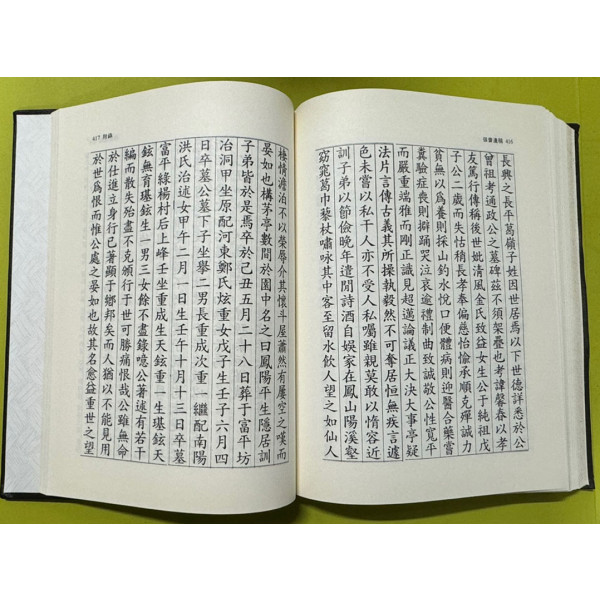 遺稿 416
長興之長平葛嶺子姓因世居焉以下世德詳悉於公
曾祖考通政公之墓碑玆不須架疊也考諱馨春以孝
友篤行傳稱後世妣清風金氏致益女生公于純祖戊
子公二歲而失怙稍長孝奉偏慈怡愉承順克殫誠力
貧無以爲養則採山釣水悅口便體病則迎醫合藥嘗
糞驗症喪則擗踊哭泣哀逾禮制曲致誠敬公性寬平
而嚴重端雅而剛正識見超邁論議正大決大事亭疑
法片言傳古義其所操執毅然不可奪居恒無疾言遽
色未嘗以私干人亦不受人私囑雖親莫敢以惰容近
訓子弟以節儉晚年遣閒詩酒自娛家在鳳山陽溪壑
窈窕葛巾藜杖嘯咏其中客至留水飮人望之如仙人
417 附錄
棲情澹泊不以榮辱介其懷斗屋蕭然有屢空之嘆而
晏如也構茅亭數間於園中名之曰鳳陽平生隱居訓
子弟皆於是焉卒於己丑五月二十八日葬于富平坊
冶洞甲坐原配河東鄭氏炫重女戊子生壬子六月四
日卒墓公墓下子坐擧二男長重成次重一繼配南陽
洪氏治述女甲午二月一日生壬午十月十三日卒墓
富平綠楊村后上峰壬坐重成生天鉉重一生璂鉉天
鉉無育璂鉉生一男三女餘不盡錄噫公著述有若干
編而散失殆盡不克頒行于世可勝痛恨哉公雖無命
於仕進立身行已著顯于鄕邦矣而人猶以不能見用
於世爲恨而惟公處之晏如也故其名愈益重世之望